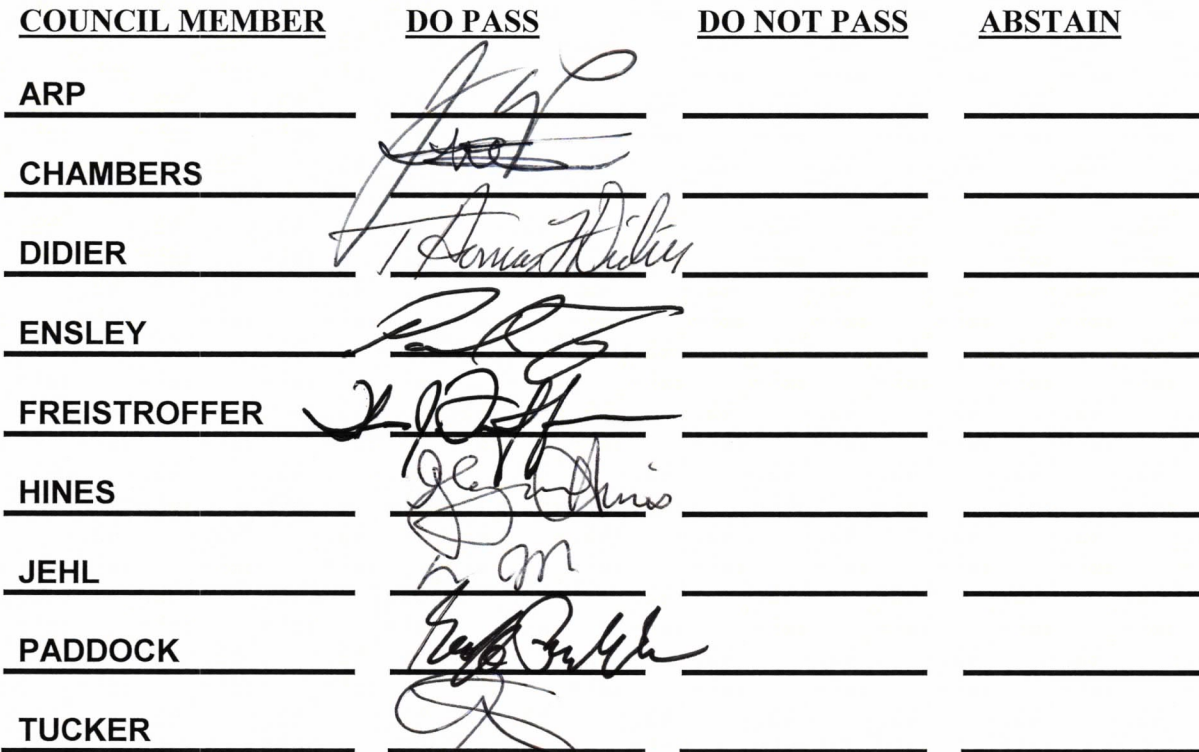 COUNCIL MEMBER DO PASS DO NOT PASS ABSTAIN
ARP
CHAMBERS
DIDIER Thomas F Didier
ENSLEY
FREISTROFFER
HINES Glynn Hines
JEHL
PADDOCK
TUCKER